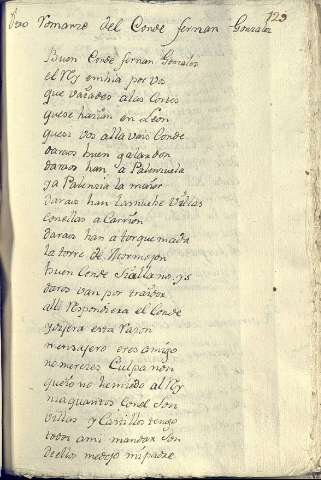 129
Otro Romanze del Conde fernan Gonzalez
Buen Conde fernan Gonzalez
el Rey embia por vos
que vaiades a las Cortes
que se hazian en Leon
que si vos alla vais Conde
daraos buen galardon
daraos han a Palenzuela
ya Palenzia la maior
daraos han las nuebe Villas
con ellas a Carrion
daraos han a torquemada
la torre de Mormojon
buen Conde si alla no ys
daros van por traidor
alli Respondiera el Conde
y dijera esta razon
mensajero eres amigo
no mereces Culpa non
que io no he miedo al Rey
ni a quantos con el son
villas y Castillos tengo
todos a mi mandar son
de ellos me dejo mi padre